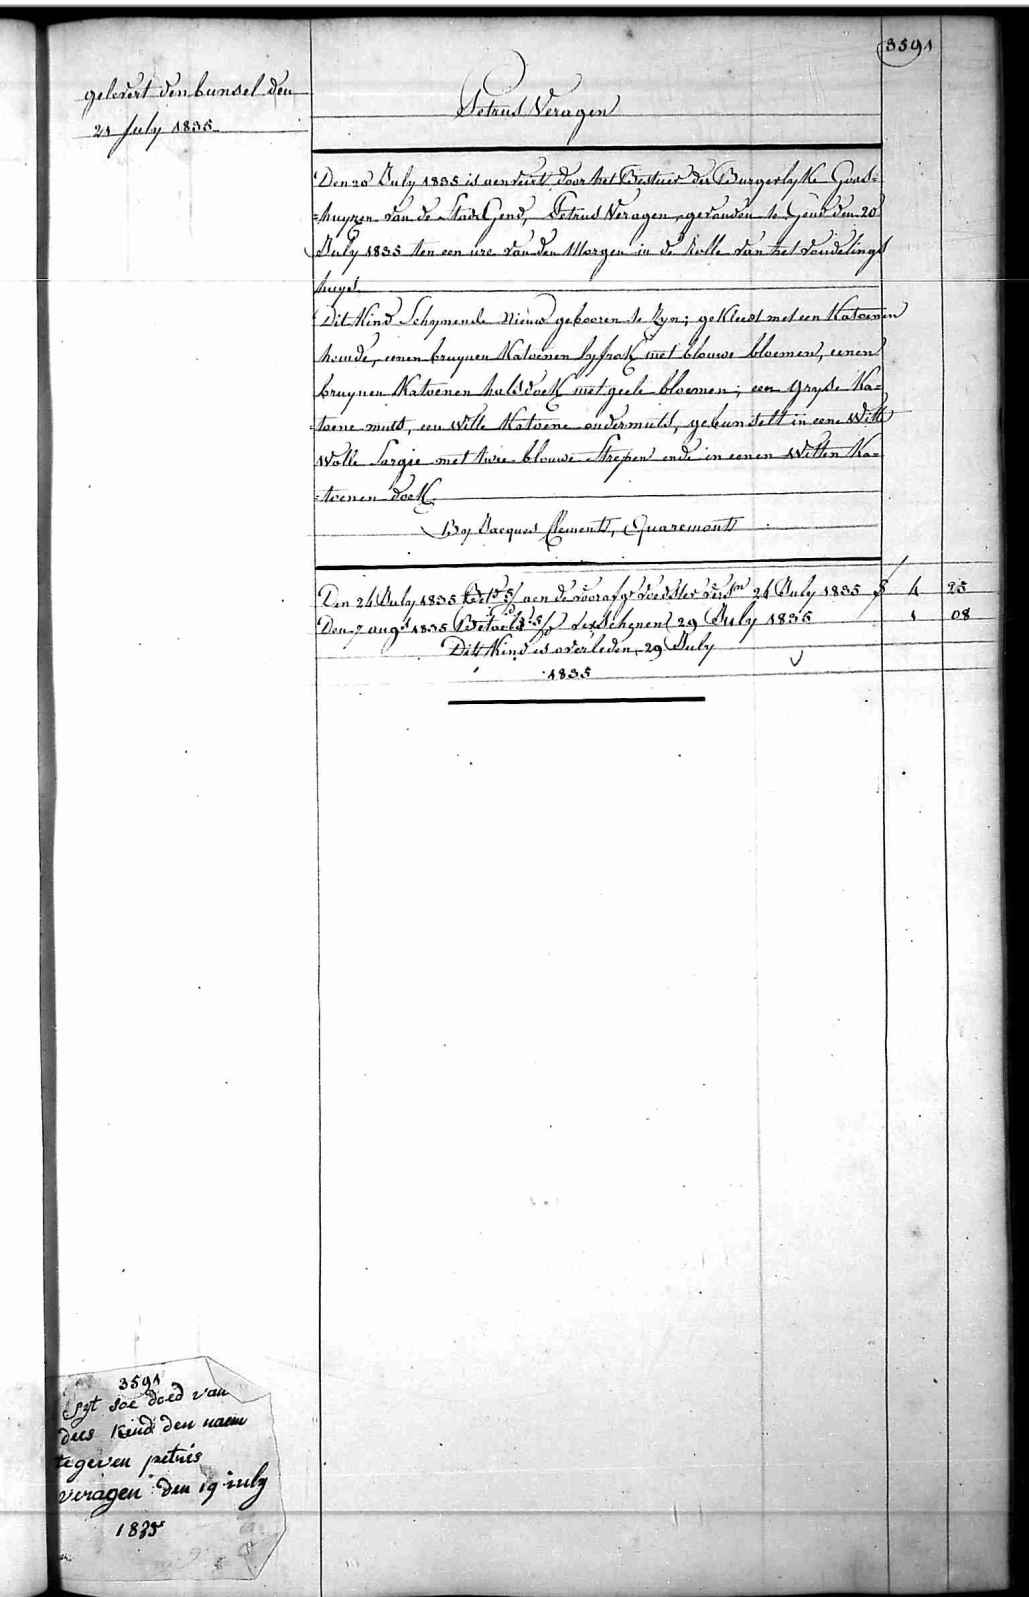 3591
gelevert den bunsel den
21 July 1835
Petrus Veragen
Den 20 July 1835 is aenveird door het Bestuer der Burgerlyke Gods=
=huyzen van de Stad Gend, Petrus Veragen, gevonden te Gend den 20
July 1835 ten een ure van den Morgen in de Rolle van het vondelings
huys.
Dit Kind Schynende Nieuw gebooren te Zyn; gekleed met een Katoenen
hemde, eenen bruynen Katoenen lyfrok met blouwe bloemen, eenen
bruynen Katoenen halsdoek met geele bloemen; een gryse Ka=
=toene muts, een Witte Katoene ondermuts, gebunselt in eene Witte
Wolle Sargie met twee blouwe Strepen ende in eenen Witten Ka=
=toenen doek.
By Jacques Clements, Quaremont
Den 24 July 1835 aen de voorafge voedster 24 July 1835 4 25
Den 7 augt 1835 Betaeld 29 July 1835 1 08
Dit Kind is overleden, 29 July
1835
3591
syt soe doed van
dees kend den naem
te geven petrus
veragen den 19 iuly
1835